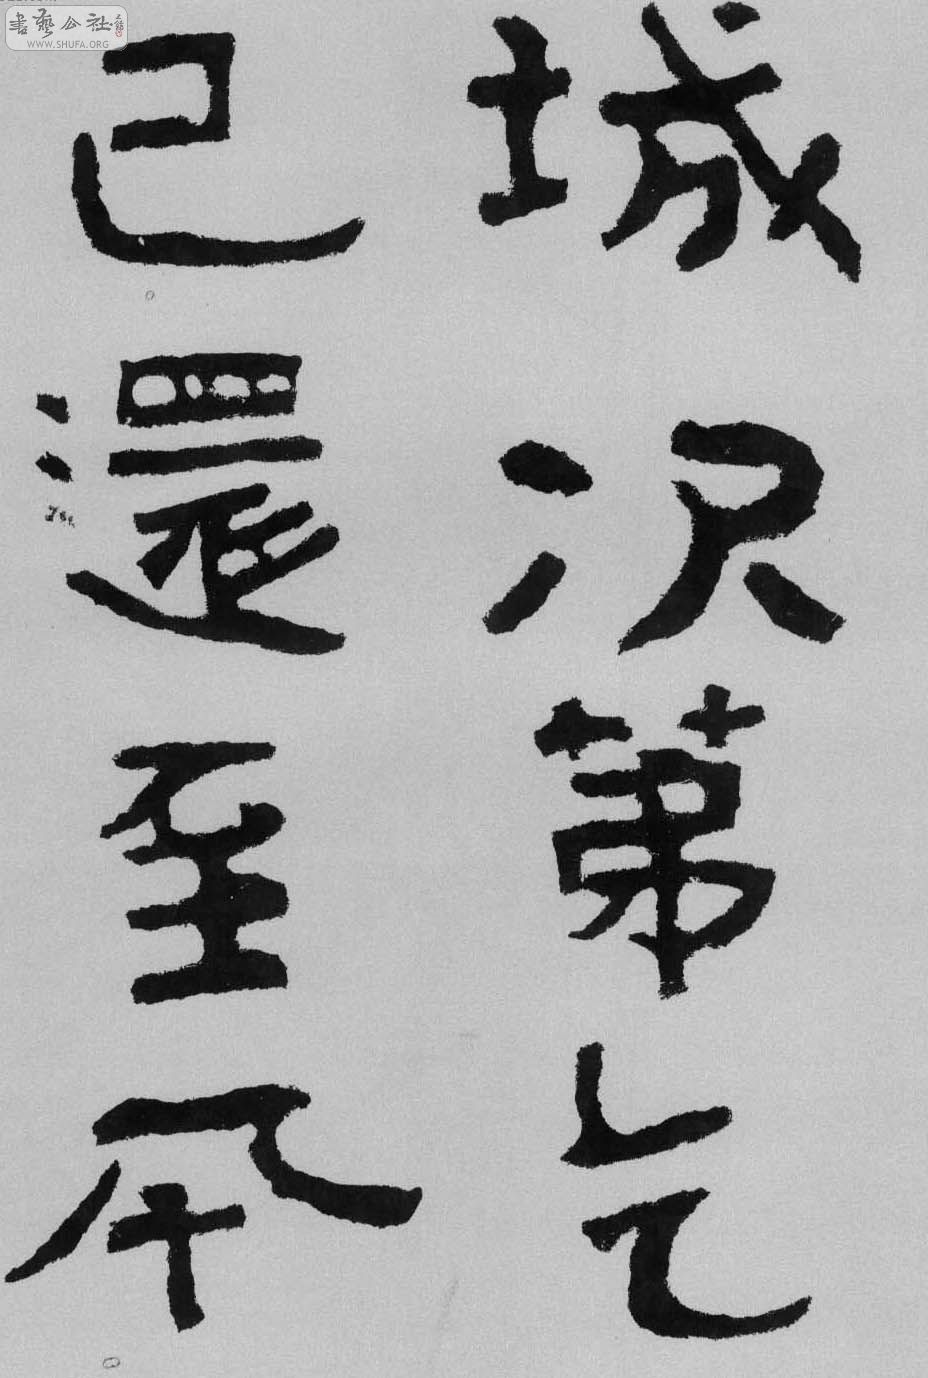 城次第乞
已還至本
書藝公社
WWW.SHUFA.ORG